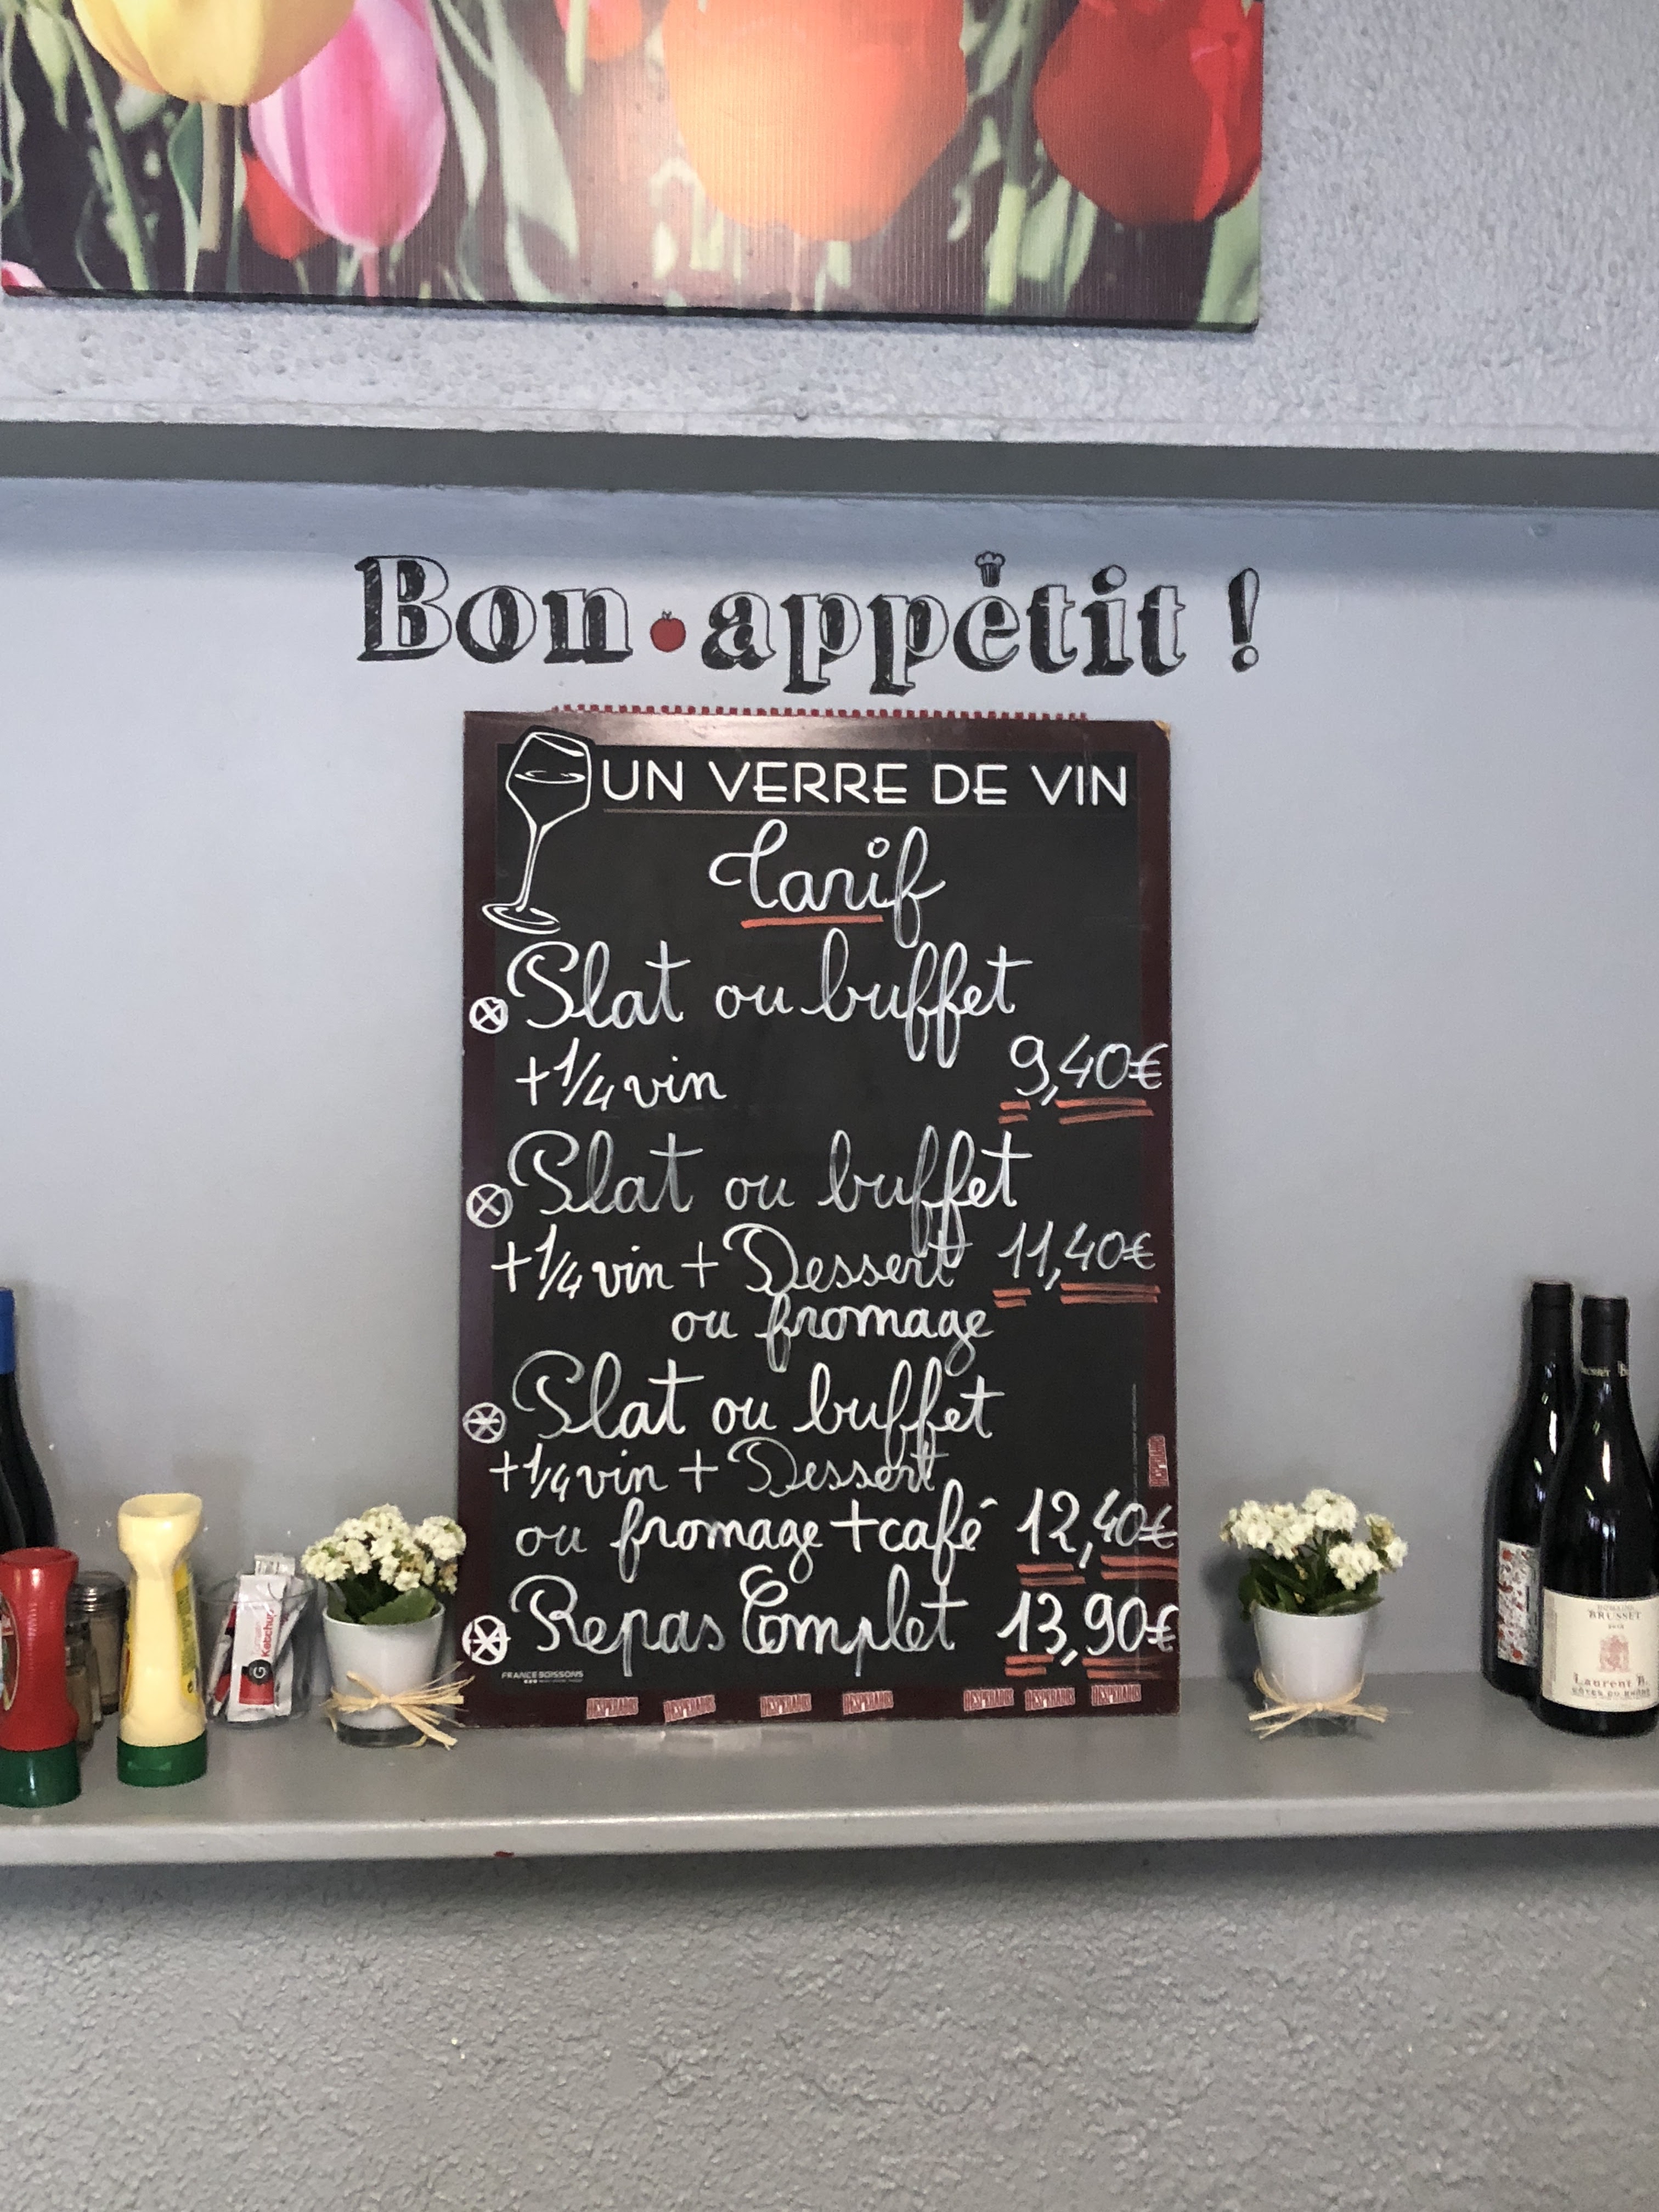 Bon appétit !
UN VERRE DE VIN
Tarif
Plat ou buffet
+1/4 vin 9,40€
Plat ou buffet
+1/4 vin + Dessert 11,40€
ou fromage
Plat ou buffet
+1/4 vin + Dessert
ou fromage + café 12,40€
Repas Complet 13,90€
FRANCE BOISSONS
DESPERADOS DESPERADOS DESPERADOS DESPERADOS DESPERADOS DESPERADOS DESPERADOS
DESPERADOS
Ketchup
DOMAINE
BRUSSET
Laurent B.
CÔTES DU RHÔNE